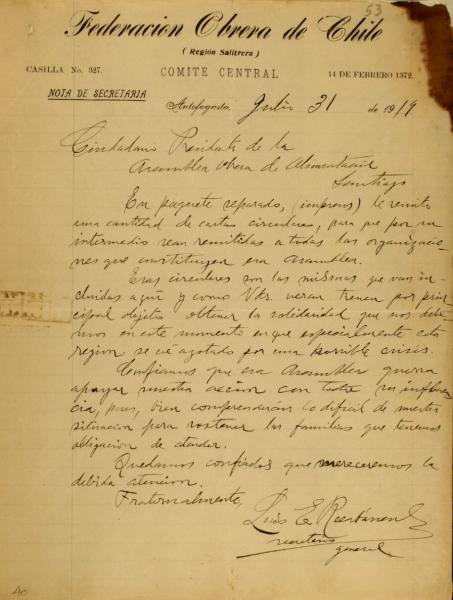 53
Federacion Obrera de Chile
( Región Salitrera )
CASILLA No. 327. COMITE CENTRAL 14 DE FEBRERO 1372.
NOTA DE SECRETARIA
Antofagasta, Julio 31 de 1919
Ciudadano Presidente de la
Asamblea Obrera de Alimentación
Santiago
En paquete separado, (impresos) le remito
una cantidad de cartas circulares, para que por su
intermedio sean remitidas a todas las organizacio-
nes que constituyen esa Asamblea.
Esas circulares son las mismas que van in-
cluidas aquí y como Vds. veran tienen por prin-
cipal objeto obtener la solidaridad que nos debe-
mos en este momento en que especialmente esta
region se vé azotada por una horrible crisis.
Confiamos que esa Asamblea querra
apoyar nuestra accion con toda su influen-
cia, pues, bien comprenderán lo dificil de nuestra
situacion para sostener las familias que tenemos
obligacion de atender.
Quedamos confiados que mereceremos la
debida atencion.
Fraternalmente,
Luis E. Recabarren S
secretario
general